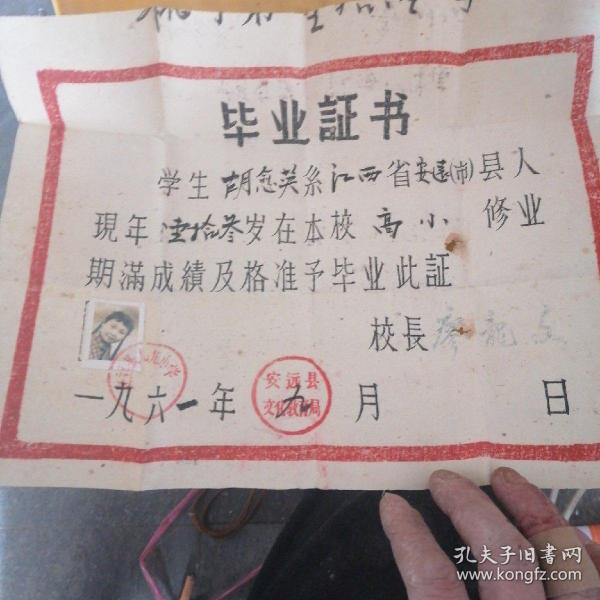 毕业証书
学生胡急英系江西省安远(市)县人
現年 拾叁岁在本校 高小 修业
期滿成績及格准予毕业此証
校長廖龍文
九小学
一九六一年 九月 日
安远县
文化教育局
孔夫子旧书网
www.kongfz.com